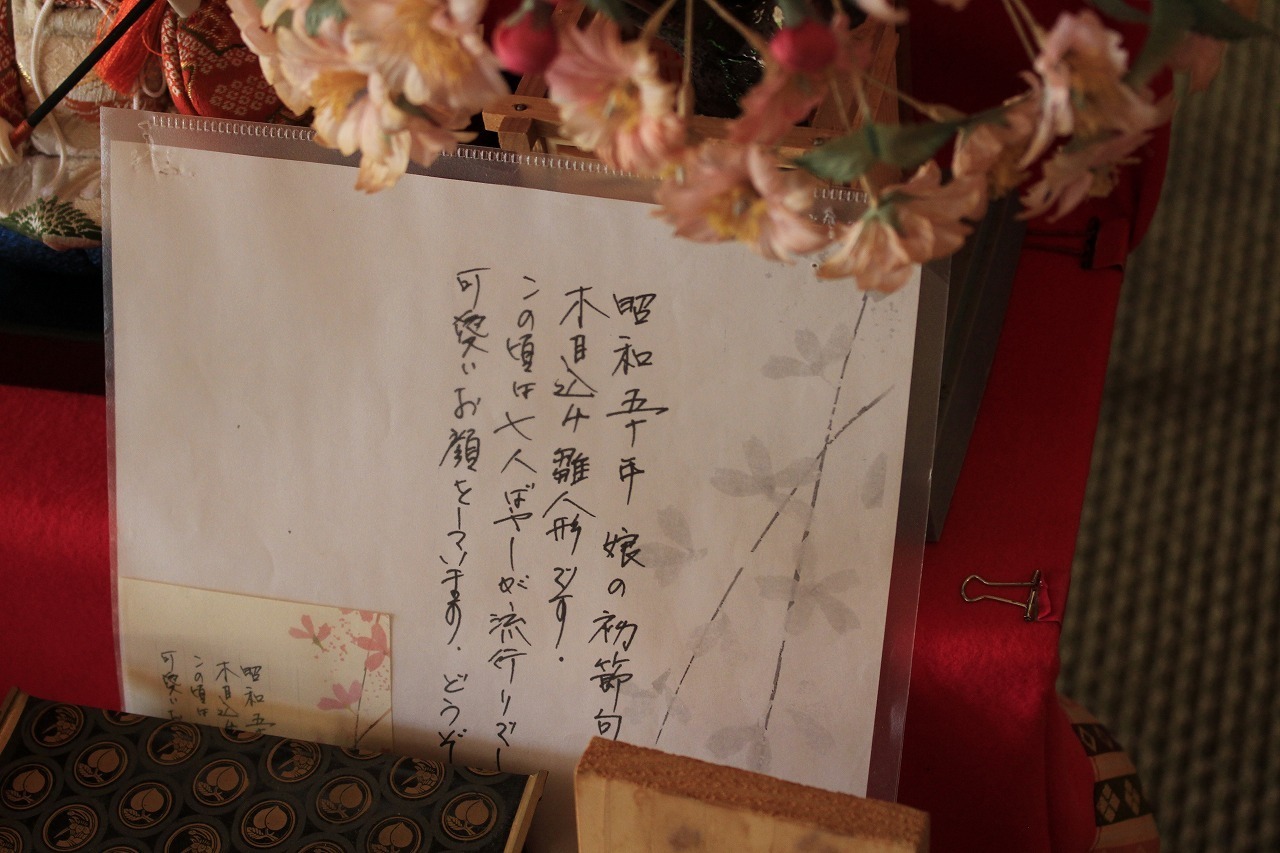 昭和五十年 娘の初節句
木目込み雛人形です.
この頃は七人ばやしが流行りでし
可愛いお顔をしています. どうぞ
昭和五
木目込み
この頃は
可愛いお